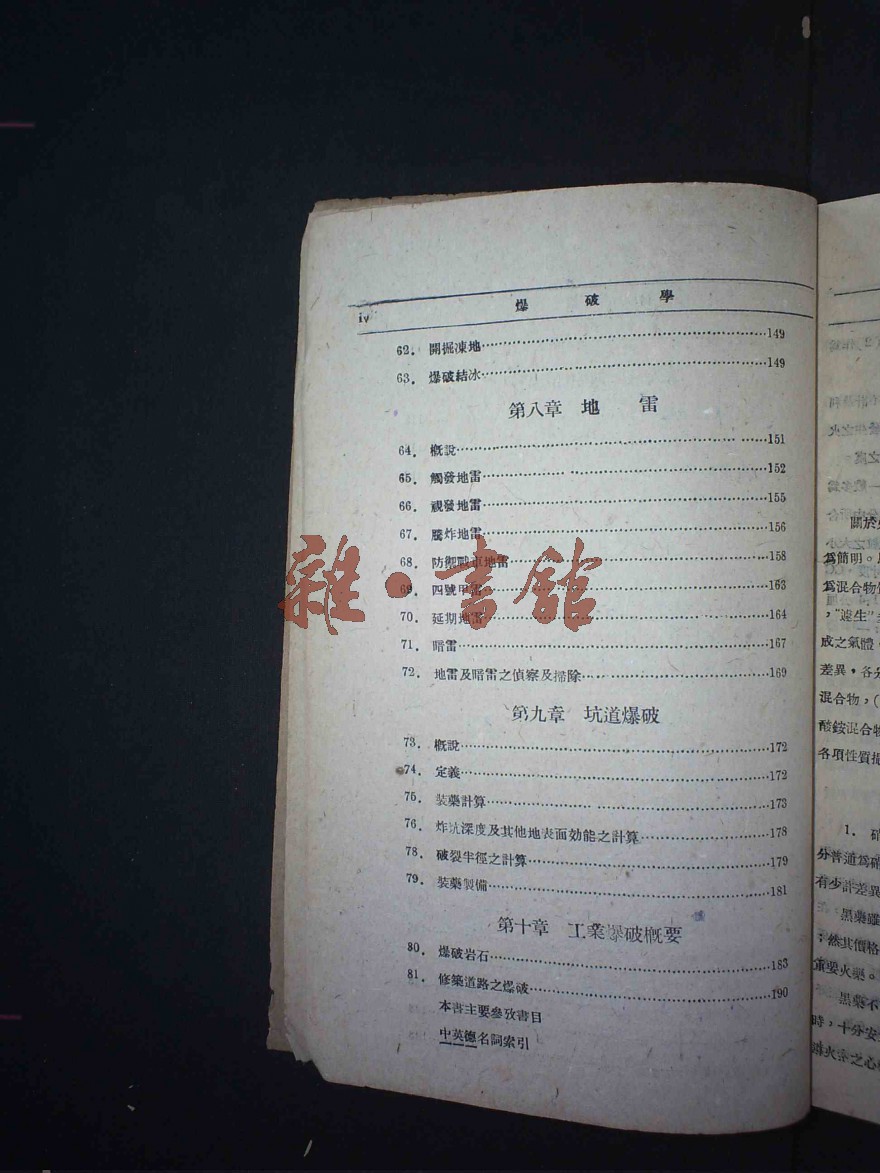 iv 爆破學
62. 開掘凍地 149
63. 爆破結冰 149
第八章 地雷
64. 概說 151
65. 觸發地雷 152
66. 視發地雷 155
67. 騰炸地雷 156
68. 防禦戰車地雷 158
69. 四號甲雷 163
70. 延期地雷 164
71. 暗雷 167
72. 地雷及暗雷之偵察及掃除 169
第九章 坑道爆破
73. 概說 172
74. 定義 172
75. 裝藥計算 173
76. 炸坑深度及其他地表面効能之計算 178
78. 破裂半徑之計算 179
79. 裝藥製備 181
第十章 工業爆破概要
80. 爆破岩石 183
81. 修築道路之爆破 190
本書主要參攷書目
中英德名詞索引
雜·書館
關於
爲簡明。
爲混合物
成之氣體
差異,各分
混合物,(
酸銨混合物
各項性質
1. 硝
分普通爲硝
有少許差異
黑藥雖
;然其價格
重要火藥。
黑藥不
時,十分安